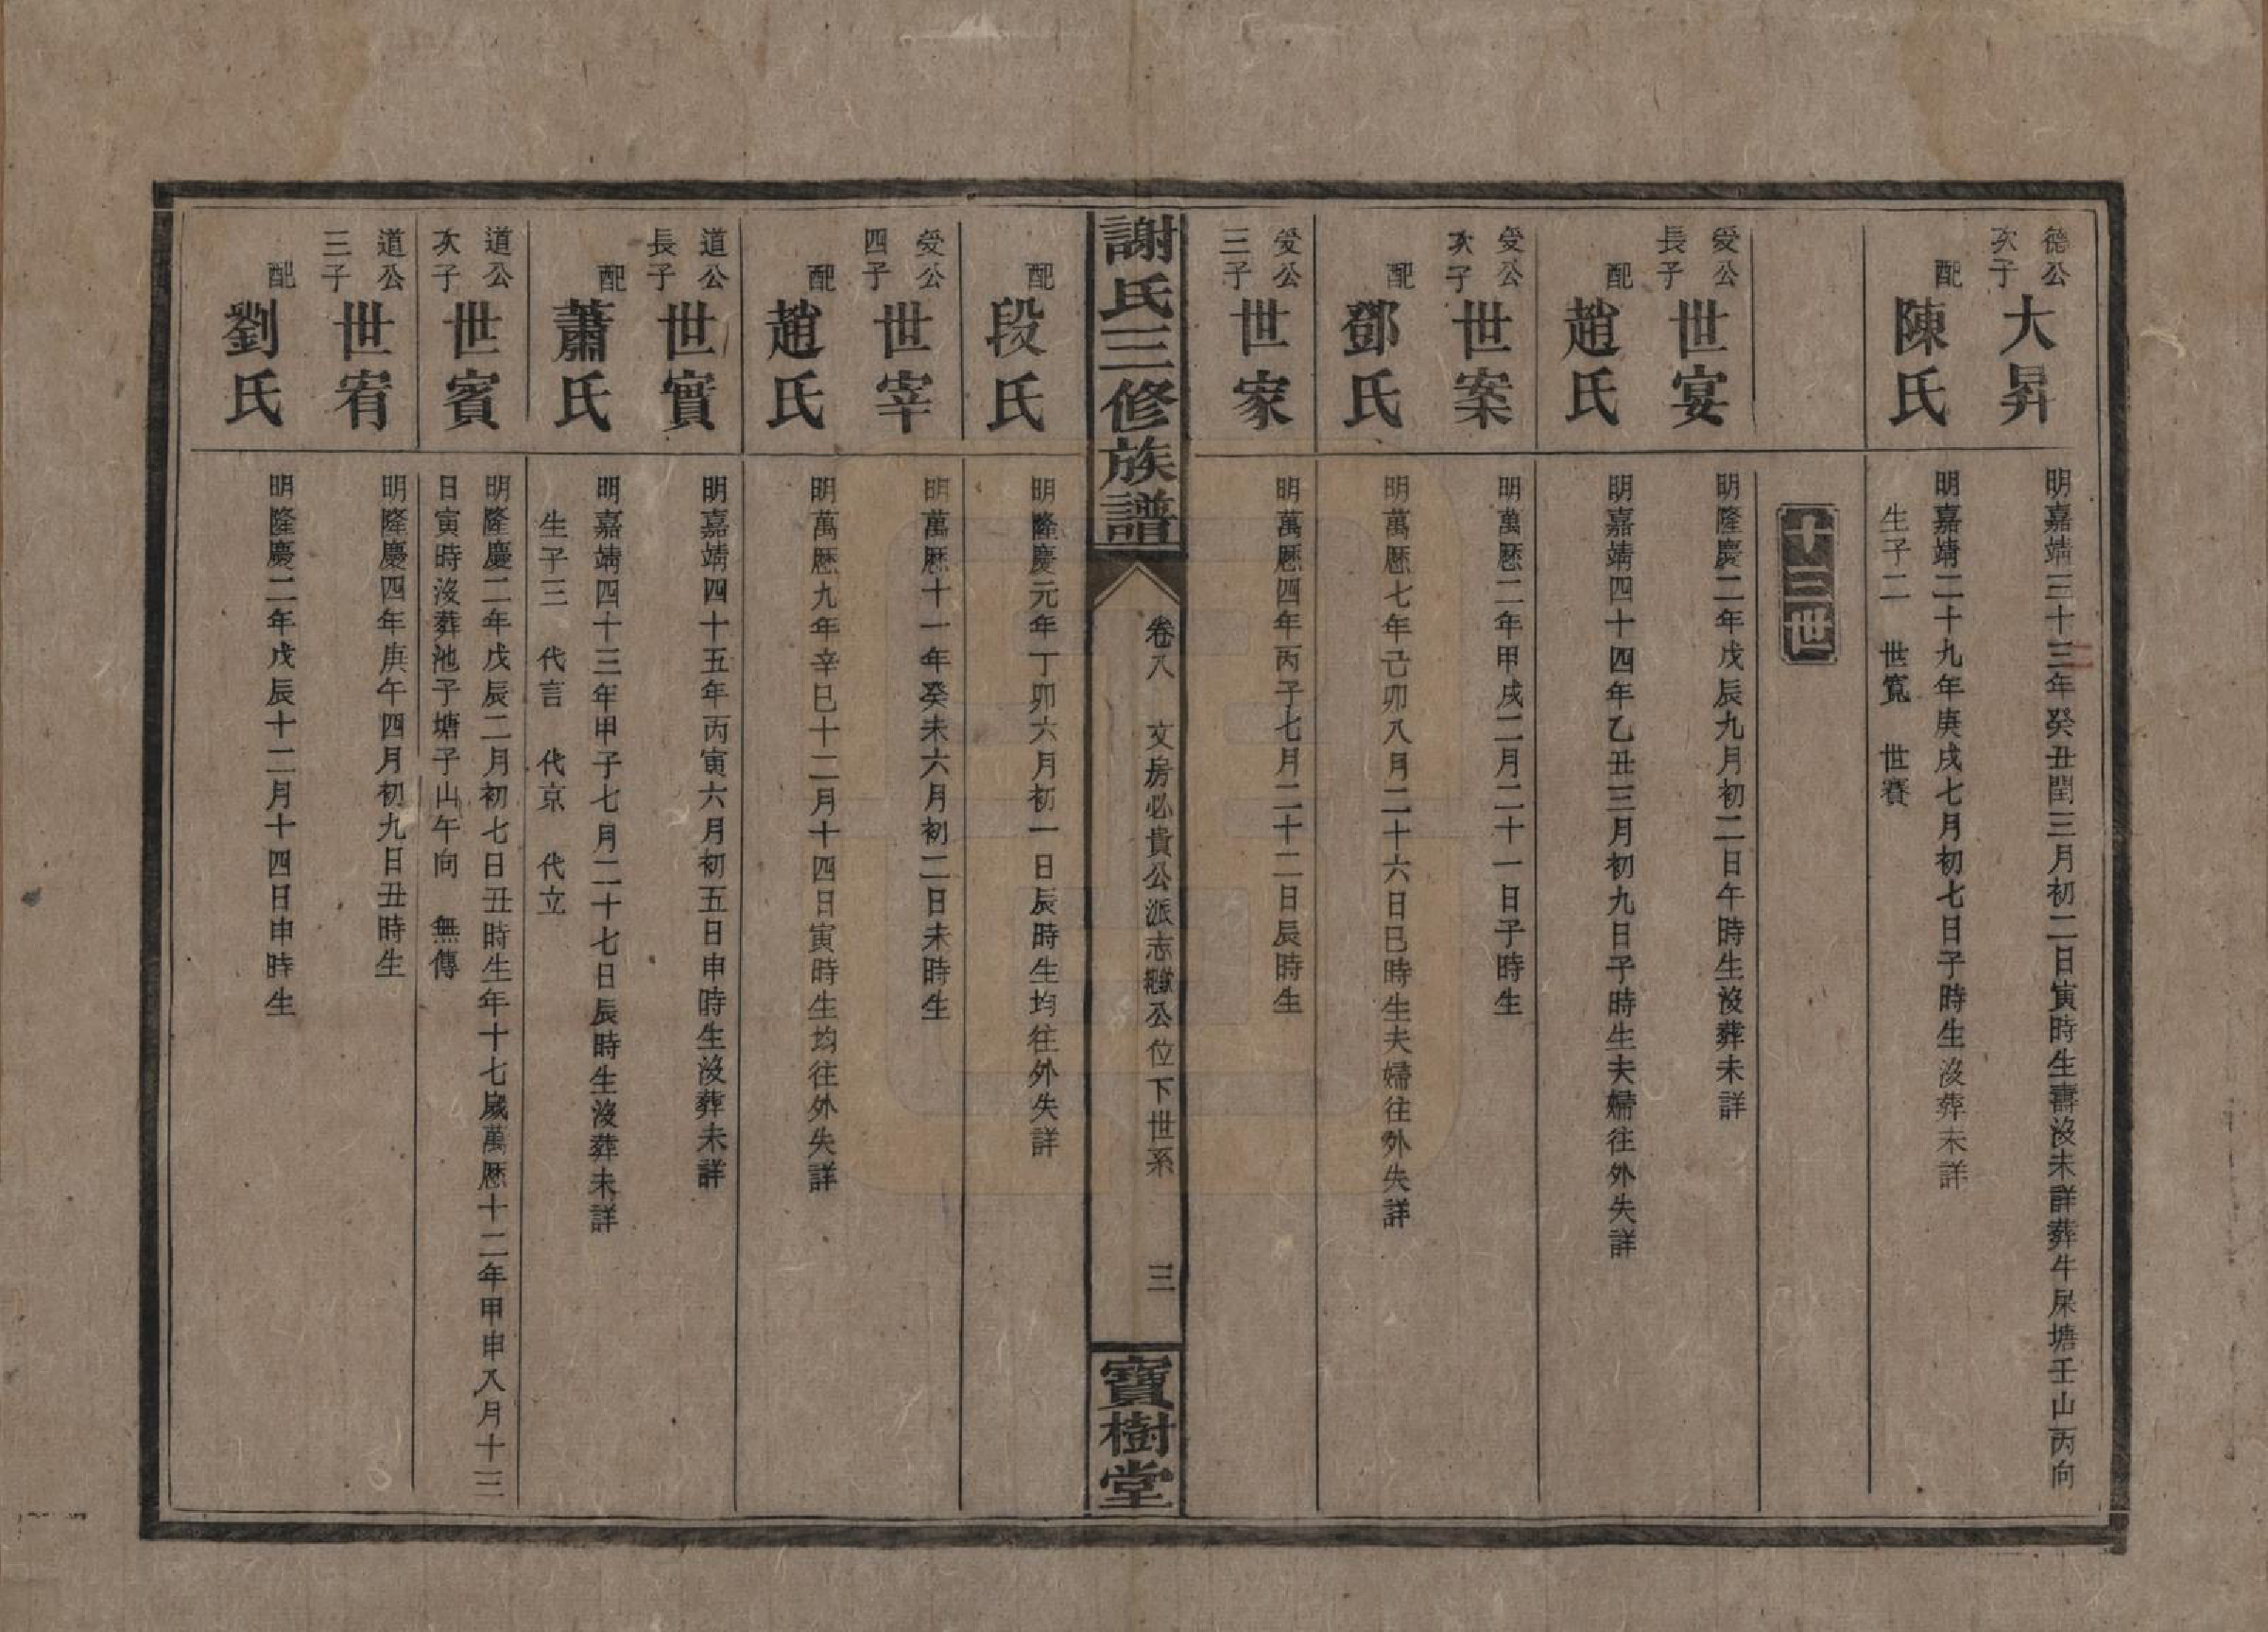 德公
次子
大昇
明嘉靖三十三年癸丑閏三月初二日寅時生壽沒未詳葬牛屎塘壬山丙向
二
配
陳氏
明嘉靖二十九年庚戌七月初七日子時生沒葬未詳
生子二　世寬　世賽
十三世
爱公
長子
世宴
明隆慶二年戊辰九月初二日午時生沒葬未詳
配
趙氏
明嘉靖四十四年乙丑三月初九日子時生夫婦往外失詳
爱公
次子
世案
明萬厯二年甲戌二月二十一日子時生
配
鄧氏
明萬厯七年己卯八月二十六日巳時生夫婦往外失詳
爱公
三子
世家
明萬厯四年丙子七月二十二日辰時生
謝氏三修族譜
卷八　文房必貴公派志繼公位下世系　三
寶樹堂
配
段氏
明隆慶元年丁卯六月初一日辰時生均往外失詳
爱公
四子
世宰
明萬厯十一年癸未六月初二日未時生
配
趙氏
明萬厯九年辛巳十二月十四日寅時生均往外失詳
道公
長子
世實
明嘉靖四十五年丙寅六月初五日申時生沒葬未詳
配
蕭氏
明嘉靖四十三年甲子七月二十七日辰時生沒葬未詳
生子三　代言　代京　代立
道公
次子
世賓
明隆慶二年戊辰二月初七日丑時生年十七歲萬厯十二年甲申八月十三
日寅時沒葬池子塘子山午向　無傳
道公
三子
世宥
明隆慶四年庚午四月初九日丑時生
配
劉氏
明隆慶二年戊辰十二月十四日申時生